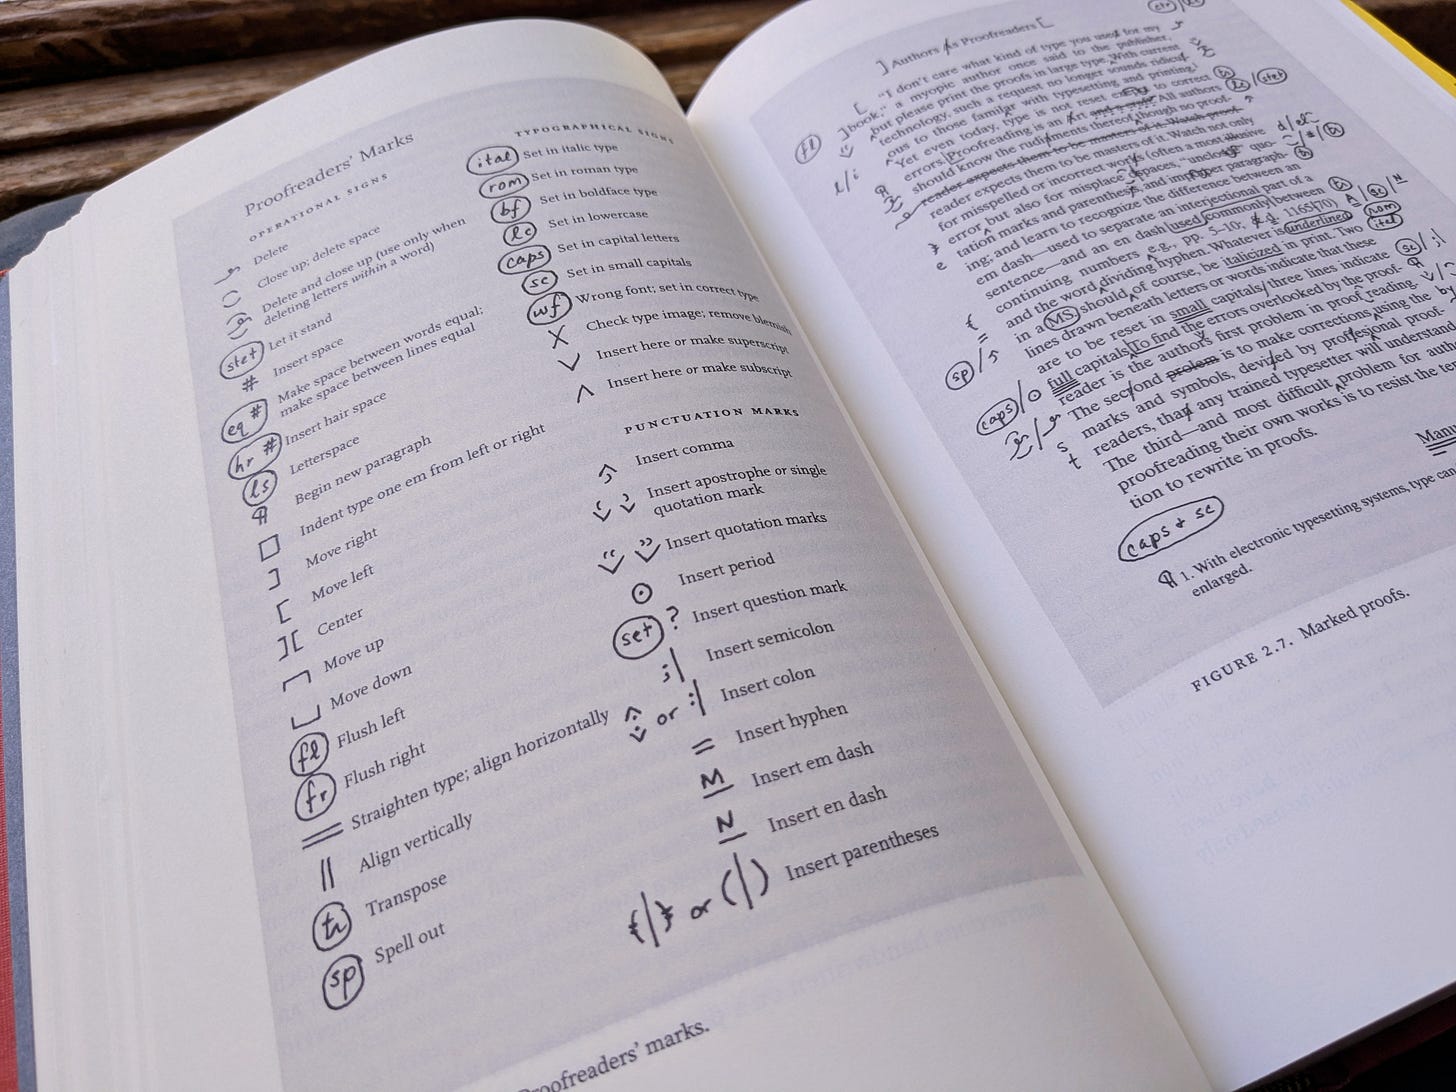 Proofreaders' Marks
OPERATIONAL SIGNS
Delete
Close up; delete space
Delete and close up (use only when
deleting letters within a word)
stet Let it stand
# Insert space
eq # Make space between words equal;
make space between lines equal
hr # Insert hair space
ls Letterspace
¶ Begin new paragraph
□ Indent type one em from left or right
] Move right
[ Move left
][ Center
Move up
Move down
fl Flush left
fr Flush right
Straighten type; align horizontally
|| Align vertically
tr Transpose
sp Spell out
TYPOGRAPHICAL SIGNS
ital Set in italic type
rom Set in roman type
bf Set in boldface type
lc Set in lowercase
caps Set in capital letters
sc Set in small capitals
wf Wrong font; set in correct type
X Check type image; remove blemish
∨ Insert here or make superscript
∧ Insert here or make subscript
PUNCTUATION MARKS
Insert comma
Insert apostrophe or single
quotation mark
Insert quotation marks
⊙ Insert period
set ? Insert question mark
;| Insert semicolon
or :| Insert colon
= Insert hyphen
M Insert em dash
N Insert en dash
or (|) Insert parentheses
Proofreaders' marks.
] Authors As Proofreaders [
[ "I don't care what kind of type you used for my
] book," a myopic author once said to the publisher,
but please print the proofs in large type. With current
technology, such a request no longer sounds ridicul
ous to those familar with typesetting and printing.
Yet even today, type is not reset to correct
errors. Proofreading is an Art and a craft. All authors
should know the rudiments thereof though no proof-
reader expects them to be masters of it. Watch proof
reader expects them to be masters of it. Watch not only
for misspelled or incorrect works (often a most illusive
error but also for misplace spaces, "unclose" quo-
tation marks and parenthesis, and improper paragraph-
ing; and learn to recognize the difference between an
em dash—used to separate an interjectional part of a
sentence—and an en dash used commonly between
continuing numbers e.g., pp. 5–10; 1165 70)
and the word dividing hyphen. Whatever is underlined
in a MS. should of course, be italicized in print. Two
lines drawn beneath letters or words indicate that these
are to be reset in small capitals three lines indicate
full capitals To find the errors overlooked by the proof-
reader is the authors first problem in proof reading
The second prolem is to make corrections using the
marks and symbols, devized by profesional proof-
readers, that any trained typesetter will understand
The third—and most difficult problem for
proofreading their own works is to resist the
tion to rewrite in proofs.
caps + sc
¶ 1. With electronic typesetting systems, type can
enlarged.
FIGURE 2.7. Marked proofs.